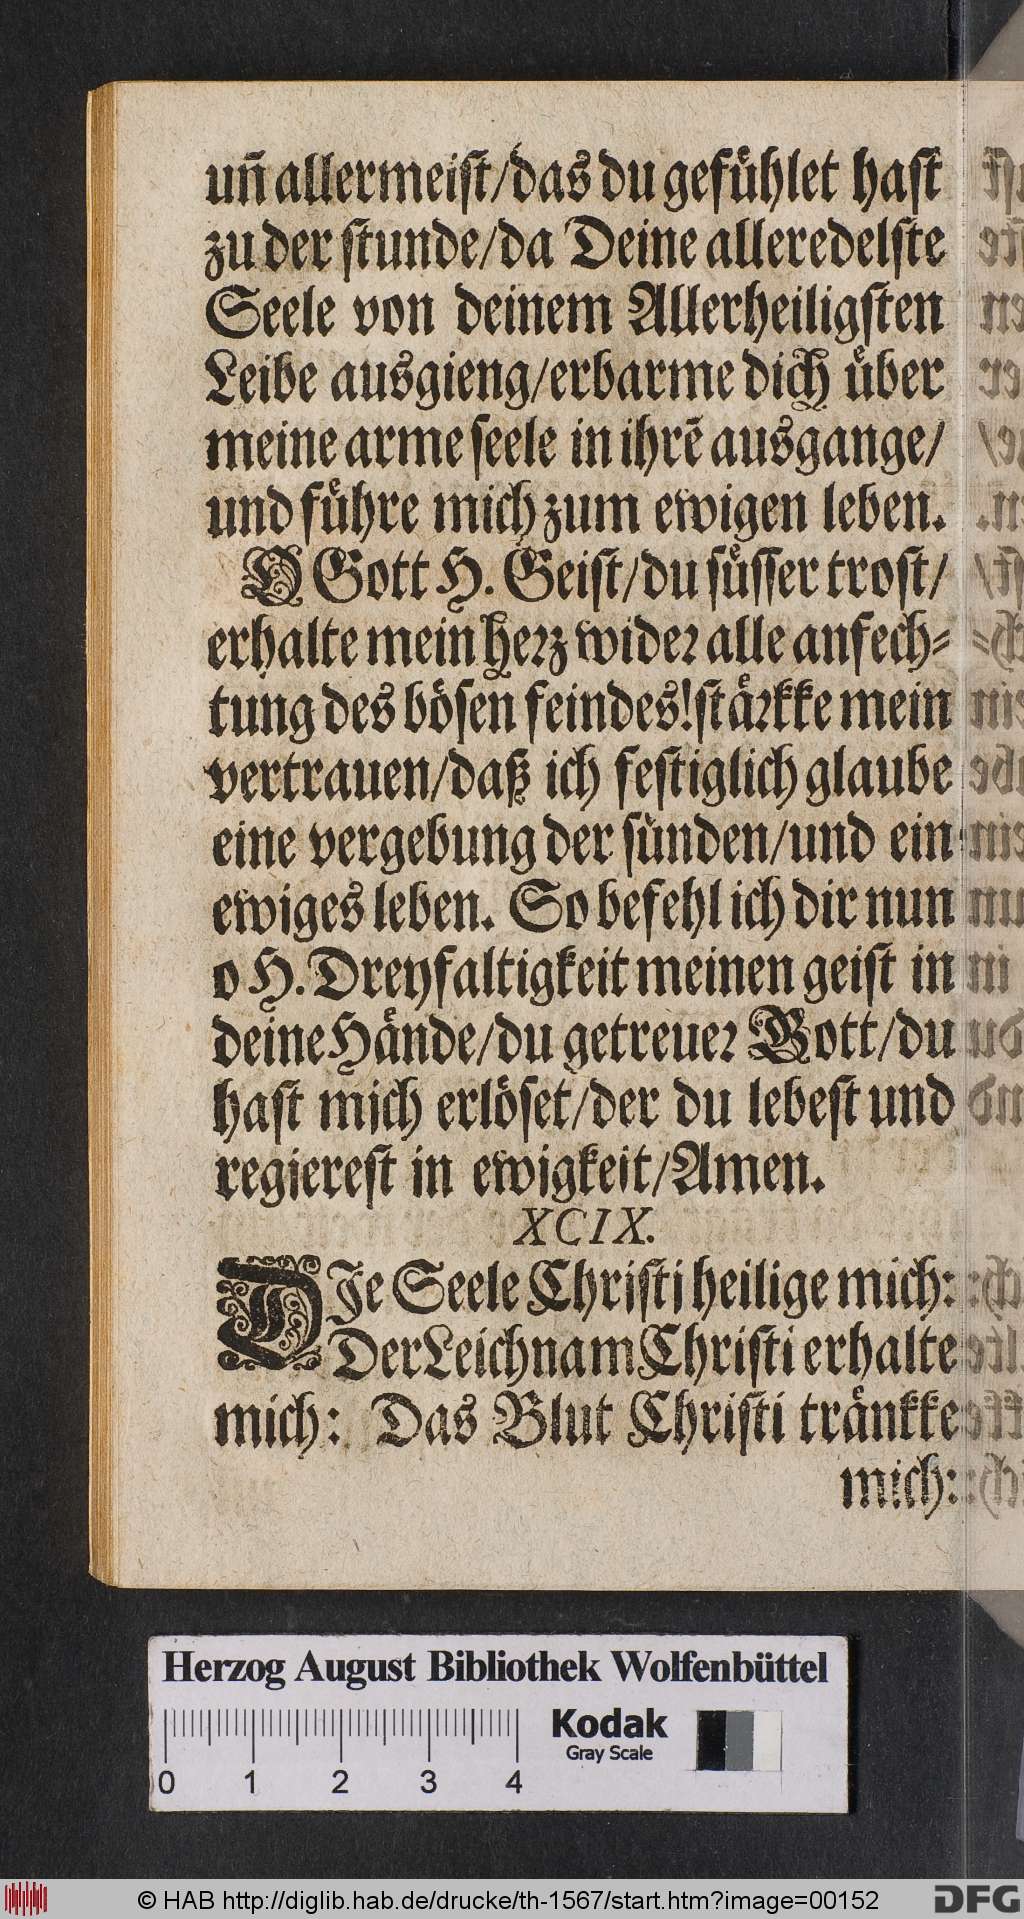 un̄ allermeist/das du gefuͤhlet hast
zu der stunde/da Deine alleredelste
Seele von deinem Allerheiligsten
Leibe ausgieng/erbarme dich uͤber
meine arme seele in ihrē ausgange/
und fuͤhre mich zum ewigen leben.
O Gott H. Geist/du suͤsser trost/
erhalte mein herz wider alle anfech-
tung des boͤsen feindes! staͤrkke mein
vertrauen/daß ich festiglich glaube
eine vergebung der suͤnden/und ein
ewiges leben. So befehl ich dir nun
o H. Dreyfaltigkeit meinen geist in
deine Haͤnde/du getreuer Gott/du
hast mich erloͤset/der du lebest und
regierest in ewigkeit/Amen.
XCIX.
DIe Seele Christi heilige mich:
Der Leichnam Christi erhalte
mich: Das Blut Christi traͤnkke
mich:
Herzog August Bibliothek Wolfenbüttel
Kodak
Gray Scale
0 1 2 3 4
© HAB http://diglib.hab.de/drucke/th-1567/start.htm?image=00152
DFG